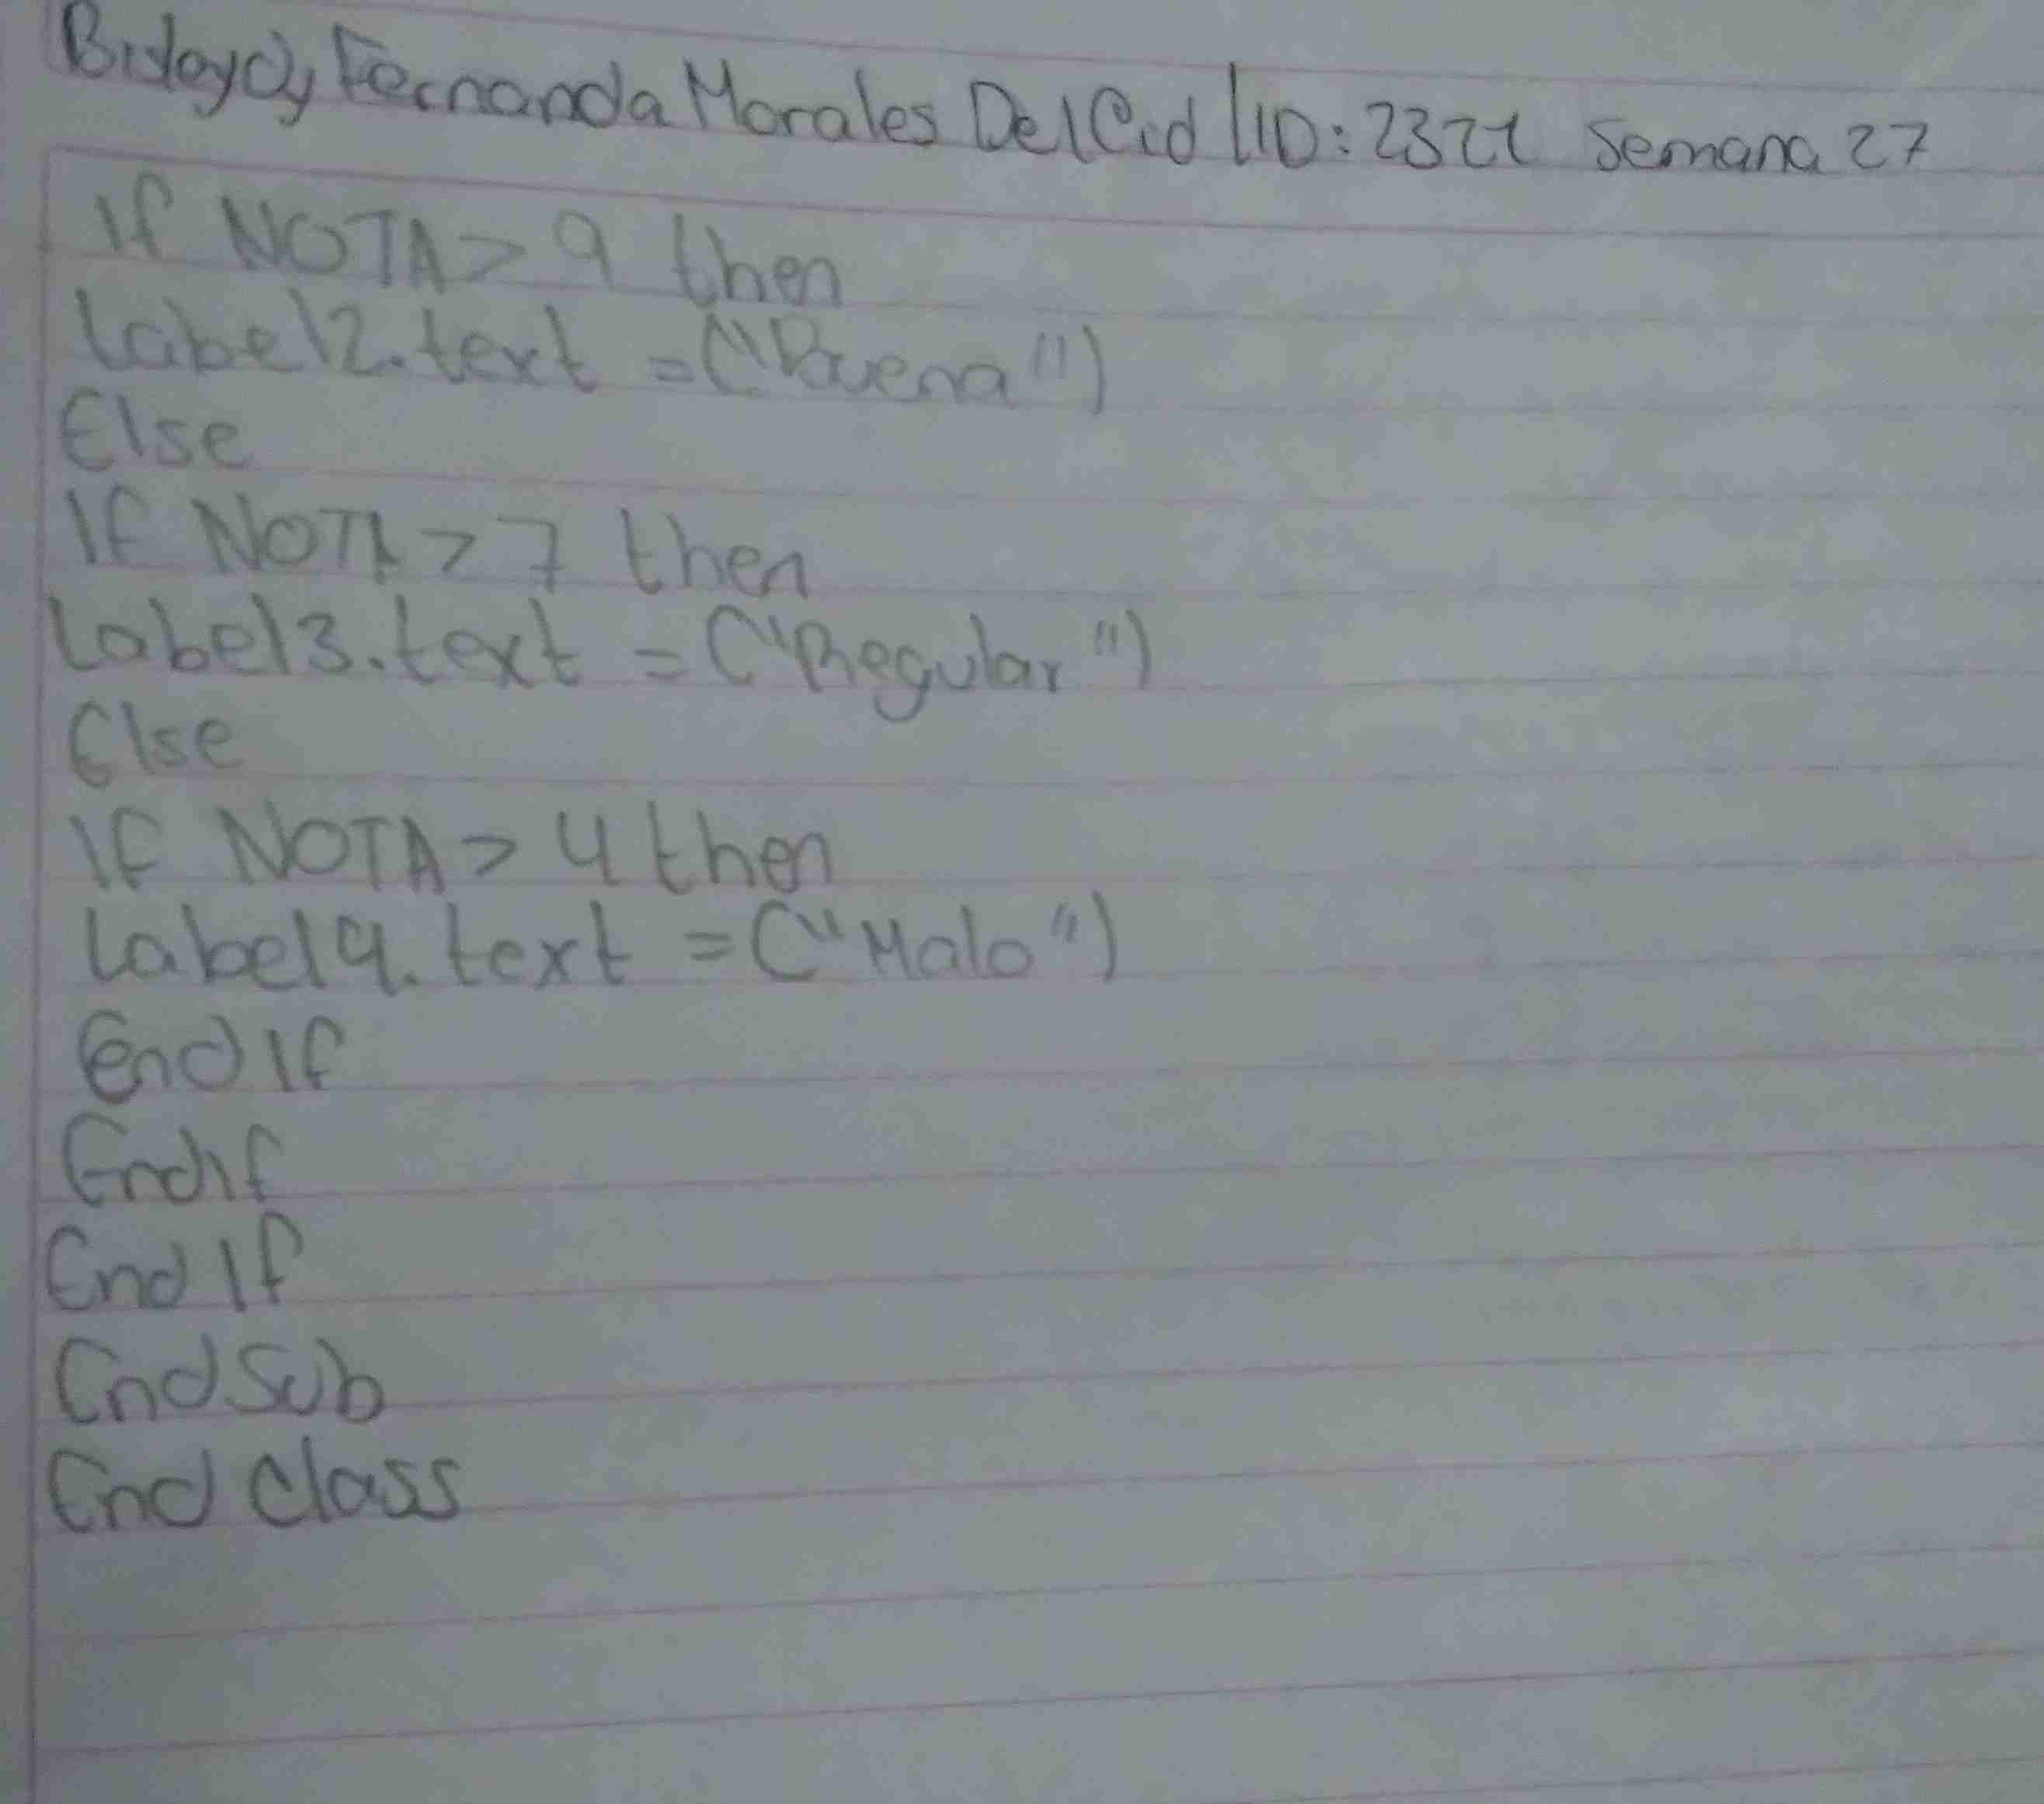 Fernanda Morales Del Cid ID: 2321 Semana 27
If NOTA > 9 then
Label2.text = ("Buena")
Else
If NOTA > 7 then
Label3.text = ("Regular")
Else
If NOTA > 4 then
Label9.text = ("Malo")
End If
Endif
End If
End Sub
End Class